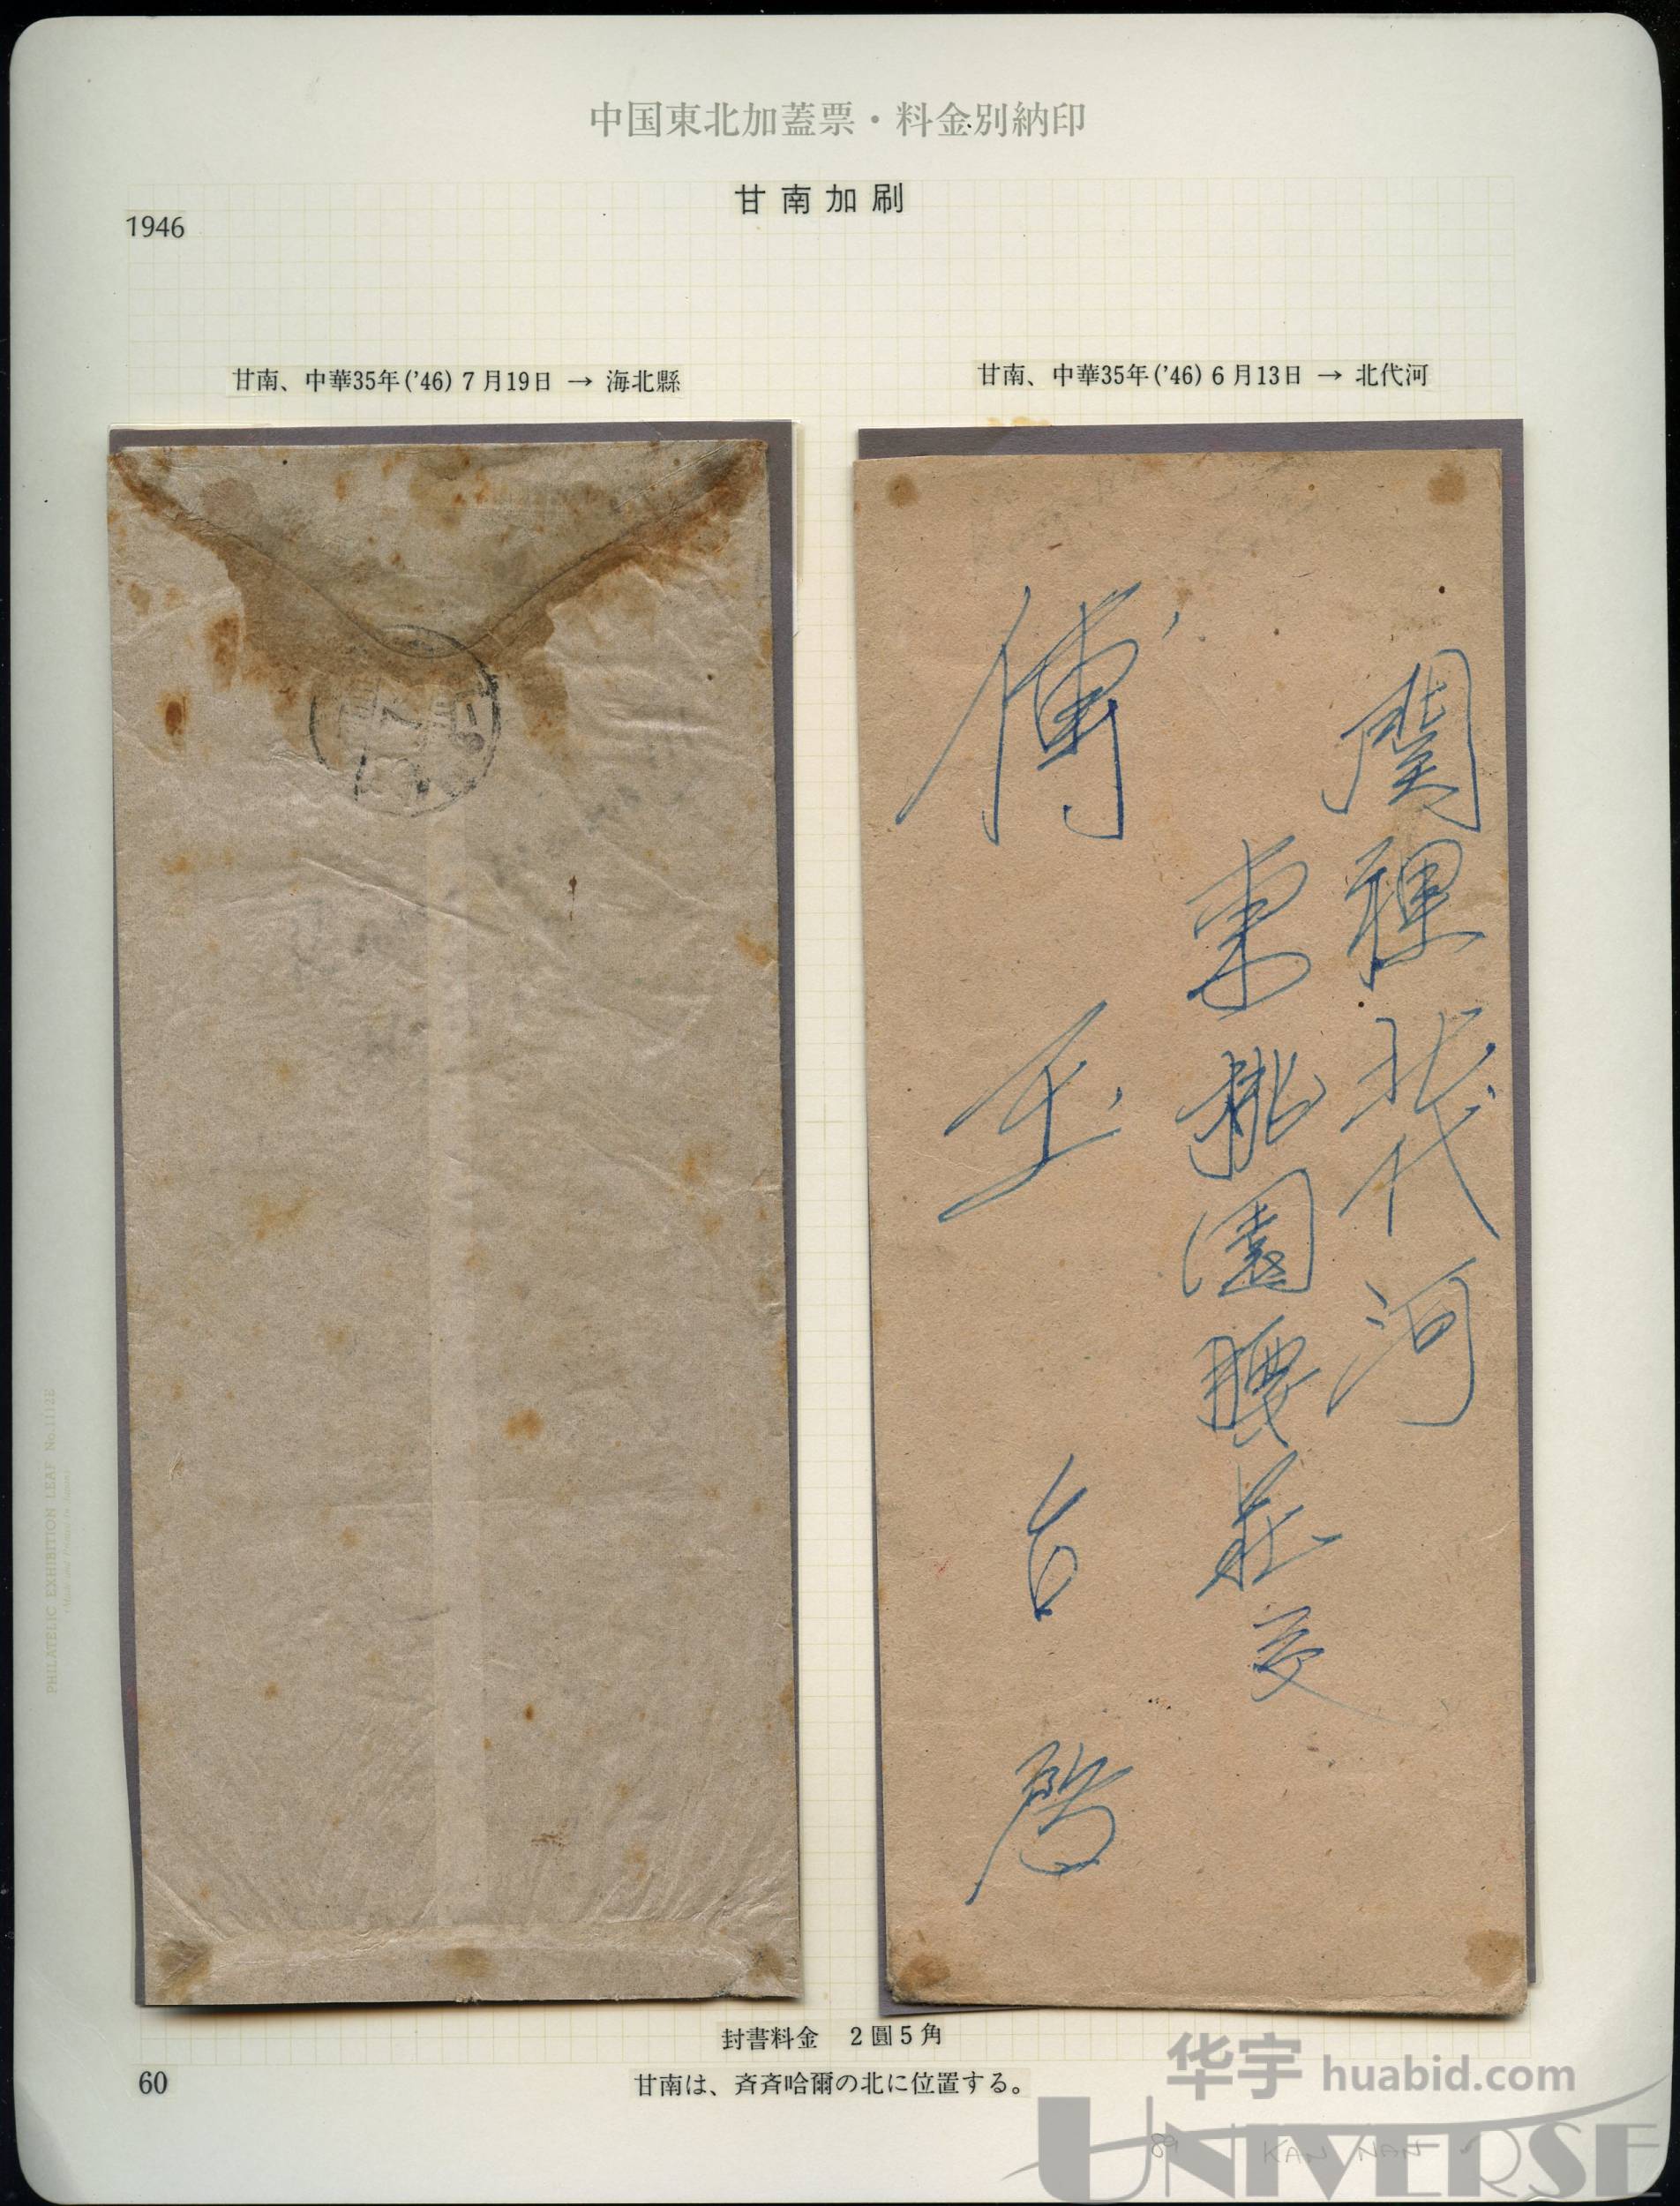 中国東北加蓋票・料金別納印
甘南加刷
1946
甘南、中華35年('46) 7月19日 → 海北縣
甘南、中華35年('46) 6月13日 → 北代河
北代河
東桃園腰莊交
傅玉台啓
封書料金 2圓5角
60
甘南は、斉斉哈爾の北に位置する。
PHILATELIC EXHIBITION LEAF No.1112E
华宇 huabid.com
UNIVERSE
89 KAN NAN